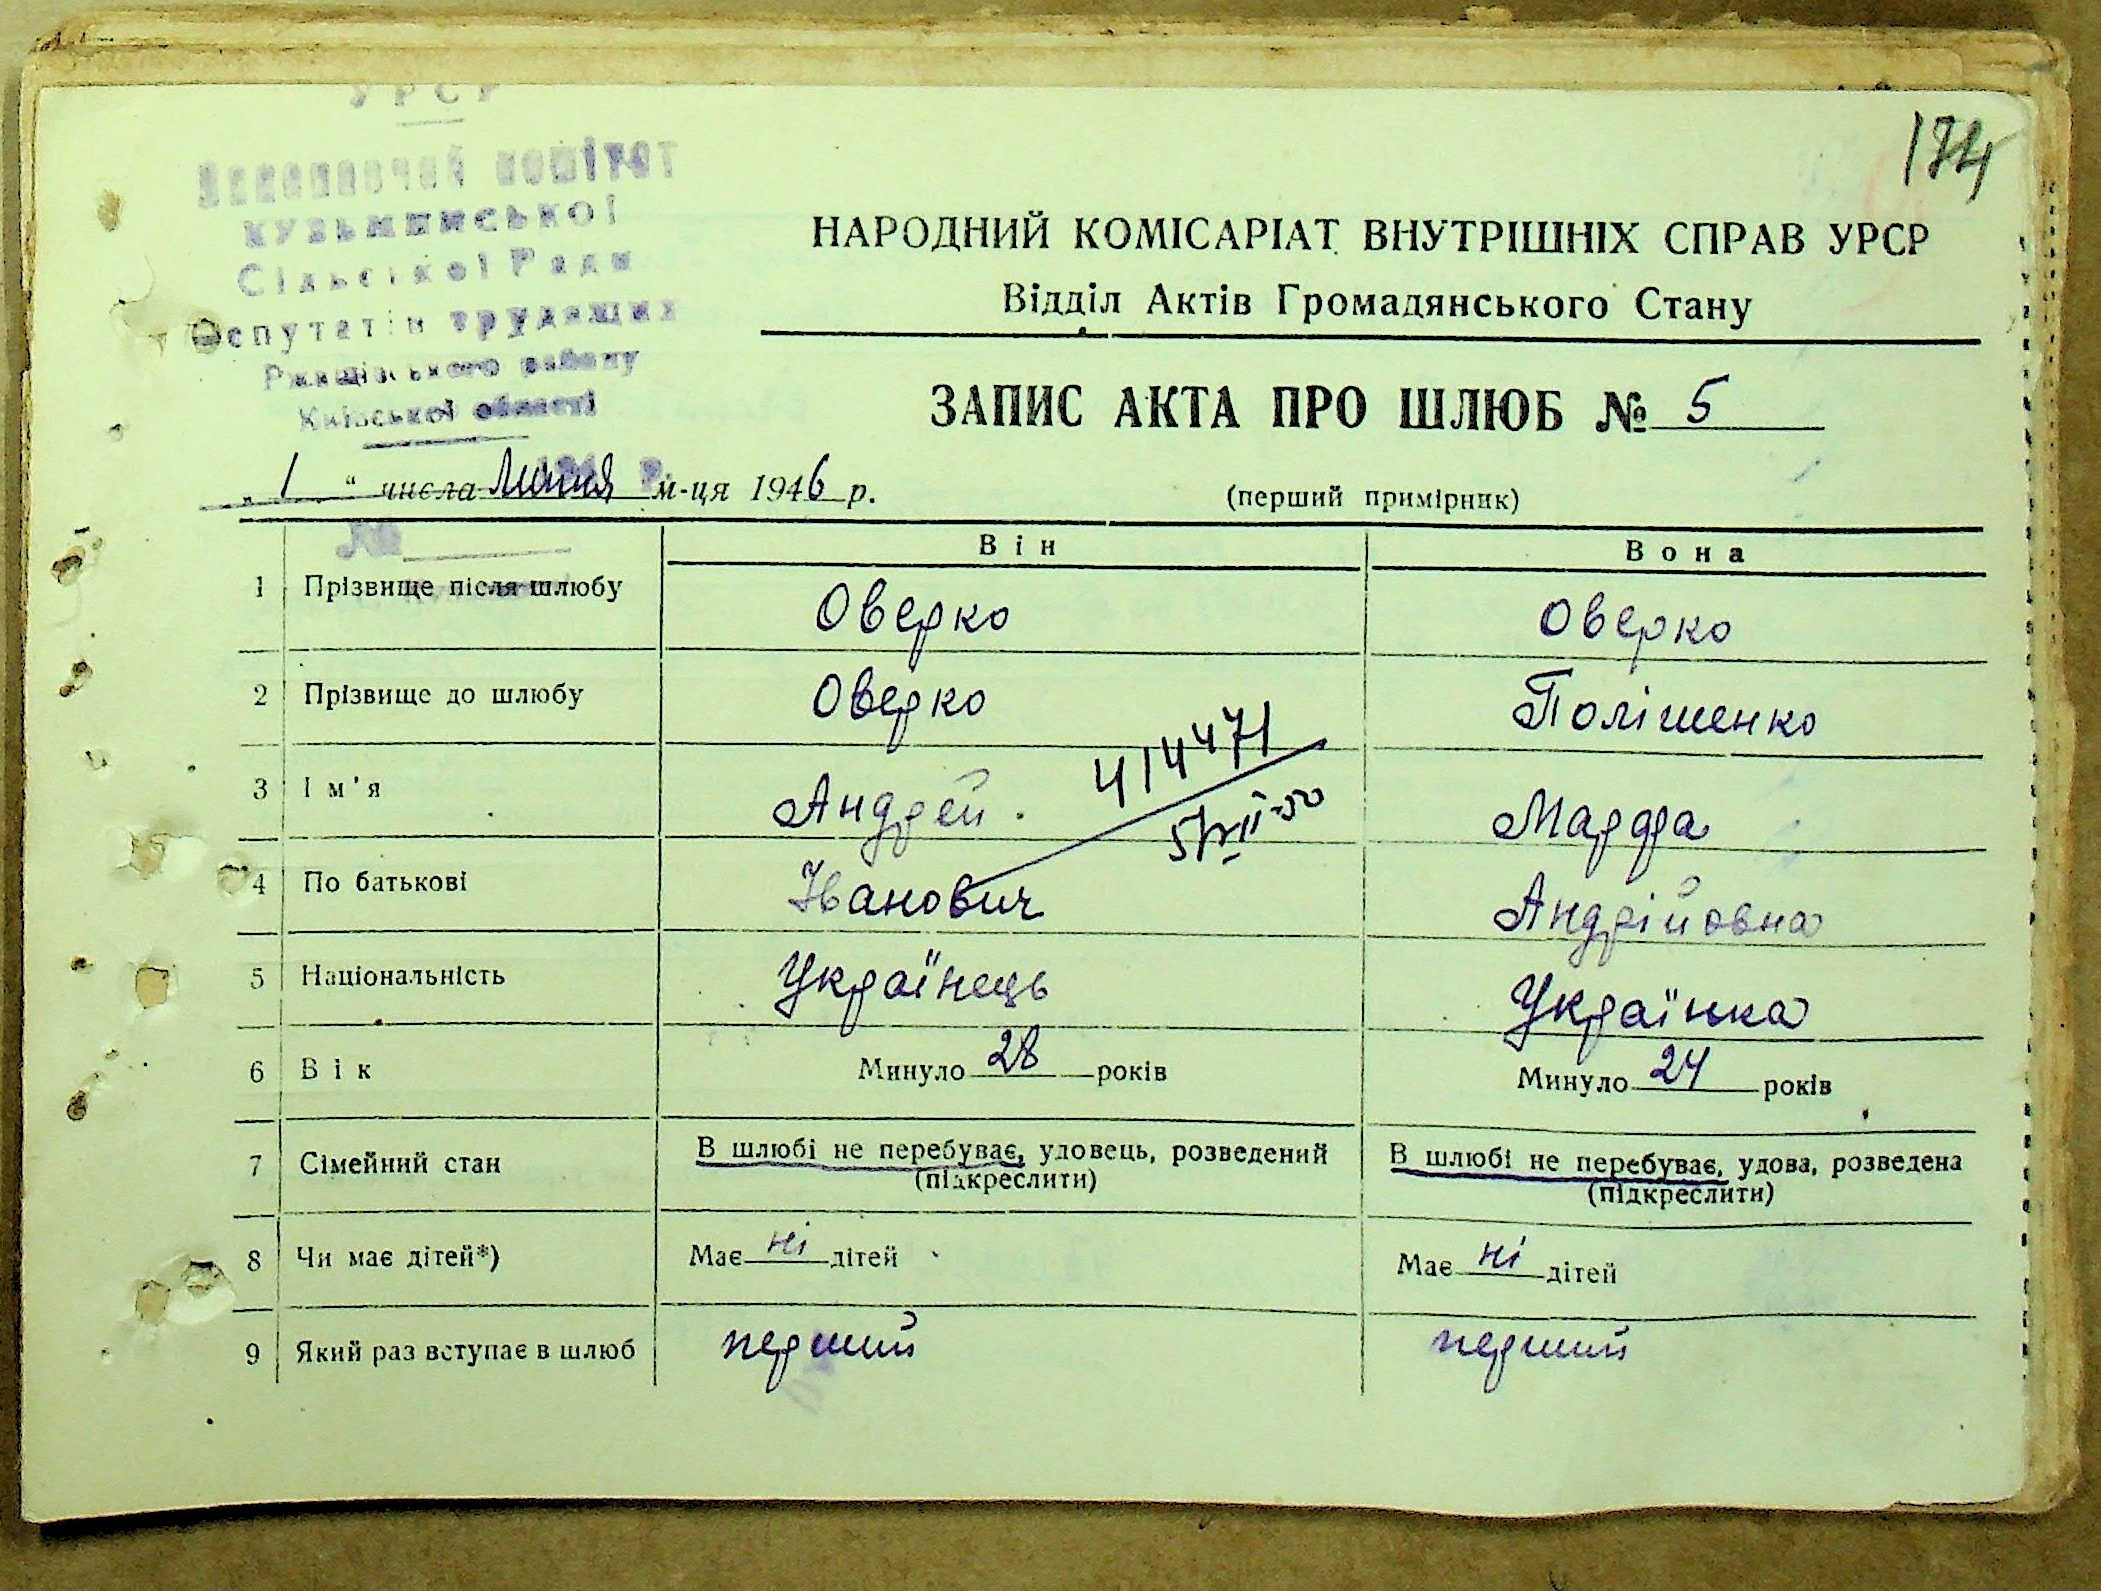 УРСР
Виконавчий комітет
Кузьминської
Сільської Ради
Депутатів трудящих
Ржищівського району
Київської області
174
НАРОДНИЙ КОМІСАРІАТ ВНУТРІШНІХ СПРАВ УРСР
Відділ Актів Громадянського Стану
ЗАПИС АКТА ПРО ШЛЮБ № 5
„ 1 “ числа Липня м-ця 1946 р.
(перший примірник)
№
Він
Вона
1 Прізвище після шлюбу Оверко Оверко
2 Прізвище до шлюбу Оверко Полішенко
414471
3 Ім'я Андрей Марфа
4 По батькові Іванович Андрійовна
5 Національність Українець Українка
6 Вік Минуло 28 років Минуло 24 років
7 Сімейний стан В шлюбі не перебуває, удовець, розведений (підкреслити) В шлюбі не перебуває, удова, розведена (підкреслити)
8 Чи має дітей*) Має ні дітей Має ні дітей
9 Який раз вступає в шлюб перший перший